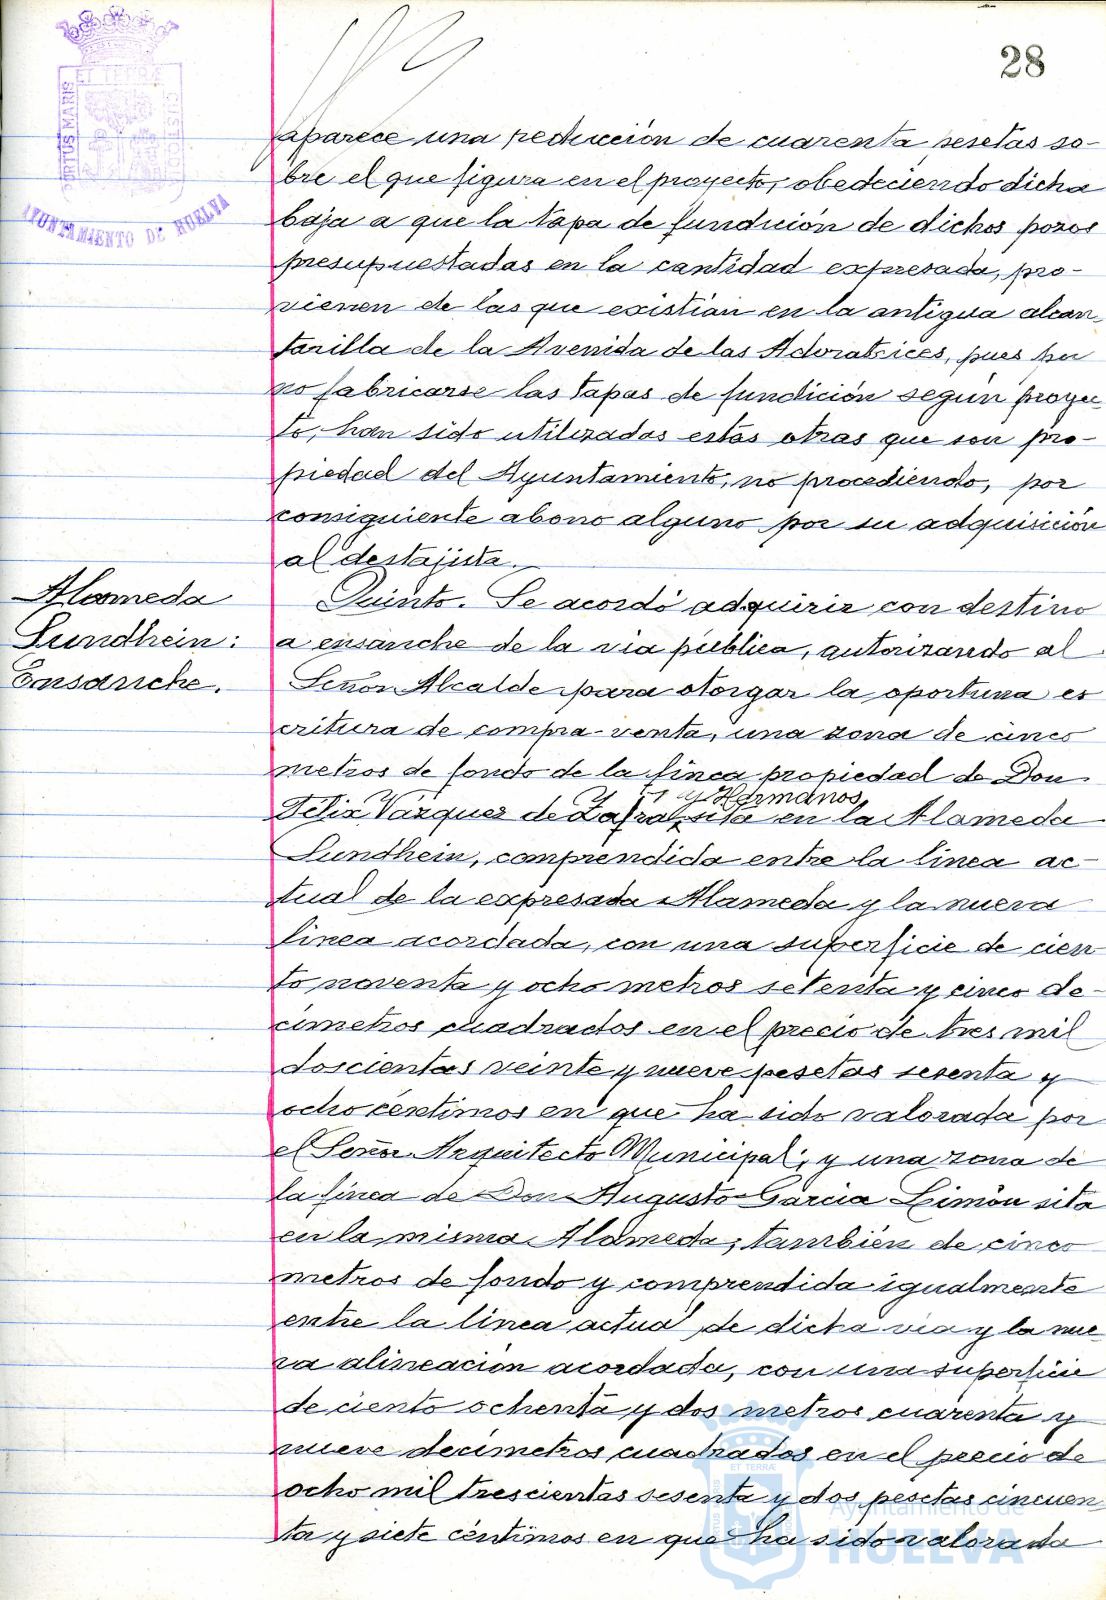 28
PORTUS MARIS ET TERRÆ CUSTODIA
AYUNTAMIENTO DE HUELVA
aparece una reducción de cuarenta pesetas so-
bre el que figura en el proyecto, obedeciendo dicha
baja a que la tapa de fundición de dichos pozos
presupuestadas en la cantidad expresada, pro-
vienen de las que existian en la antigua alcan-
tarilla de la Avenida de las Adoratrices, pues por
no fabricarse las tapas de fundición según proyec-
to, han sido utilizadas estas otras que son pro-
piedad del Ayuntamiento, no procediendo, por
consiguiente abono alguno por su adquisición
al destajista.
Alameda
Sundhein:
Ensanche.
Quinto. Se acordó adquirir con destino
a ensanche de la via pública, autorizando al
Señor Alcalde para otorgar la oportuna es
critura de compra-venta, una zona de cinco
metros de fondo de la finca propiedad de Don
y Hermanos,
Felix Vázquez de Zafra, sita en la Alameda
Sundhein, comprendida entre la linea ac-
tual de la expresada Alameda y la nueva
linea acordada, con una superficie de cien
to noventa y ocho metros setenta y cinco de-
cimetros cuadrados en el precio de tres mil
doscientas veinte y nueve pesetas sesenta y
ocho céntimos en que ha sido valorada por
el Señor Arquitecto Municipal; y una zona de
la finca de Don Augusto Garcia Limón sita
en la misma Alameda, también de cinco
metros de fondo y comprendida igualmente
entre la linea actual de dicha via y la nue
va alineación acordada, con una superficie
de ciento ochenta y dos metros cuarenta y
nueve decimetros cuadrados en el precio de
ocho mil trescientas sesenta y dos pesetas cincuen
ta y siete céntimos en que ha sido valorada
Ayuntamiento de
HUELVA